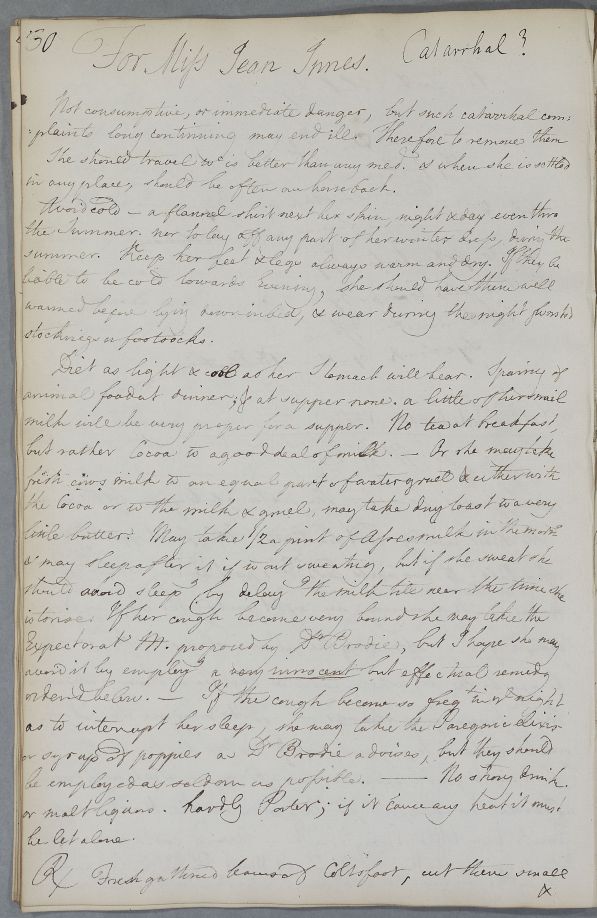 30 For Miss Jean Innes. Catarrhal?
Not consumptive, or immediate danger, but such catarrhal com:
:plaints long continuing may end ill. Therefore to remove them
She should travel wc is better than any med. & when she is settled
in any place, should be often on horseback.
Avoid cold – a flannel shirt next her skin, night & day even thro
the Summer. nor to lay off any part of her winter dress, during the
summer. Keep her feet & legs always warm and dry. If they be
liable to be cold towards Evening, she should have them well
warmed before lying down in bed, & wear during the night worsted
stockings or footsocks.
Diet as light & cool as her Stomach will bear. Sparing of
animal food at dinner; & at supper none. a little of her small
milk will be very proper for a supper. No tea at breakfast,
but rather Cocoa wt a good deal of milk. — Or she may take
fresh cows milk wt an equal part of water gruel & either with
the Cocoa or wt the milk & gruel, may take dry toast wt a very
little butter. May take 1/2 a pint of Asses milk in the morng
& may sleep after it if wtout sweating, but if she sweat she
should avoid sleepg by delayg the milk till near the time she
is to rise. If her cough become very bound she may take the
Expectorat Mt. proposed by Dr Brodie, but I hope she may
avoid it by employg a very innocent but effectual remedy
ordered below. — If the cough become so freqt in ye night
as to interrupt her sleep, she may take the Paregoric elixir
or syrup of poppies as Dr Brodie advises, but they should
be employed as seldom as possible. — No strong drink.
or malt liquors. hardly Porter; if it cause any heat it must
be let alone.
Rx Fresh gathered leaves of Coltsfoot, cut them small
&